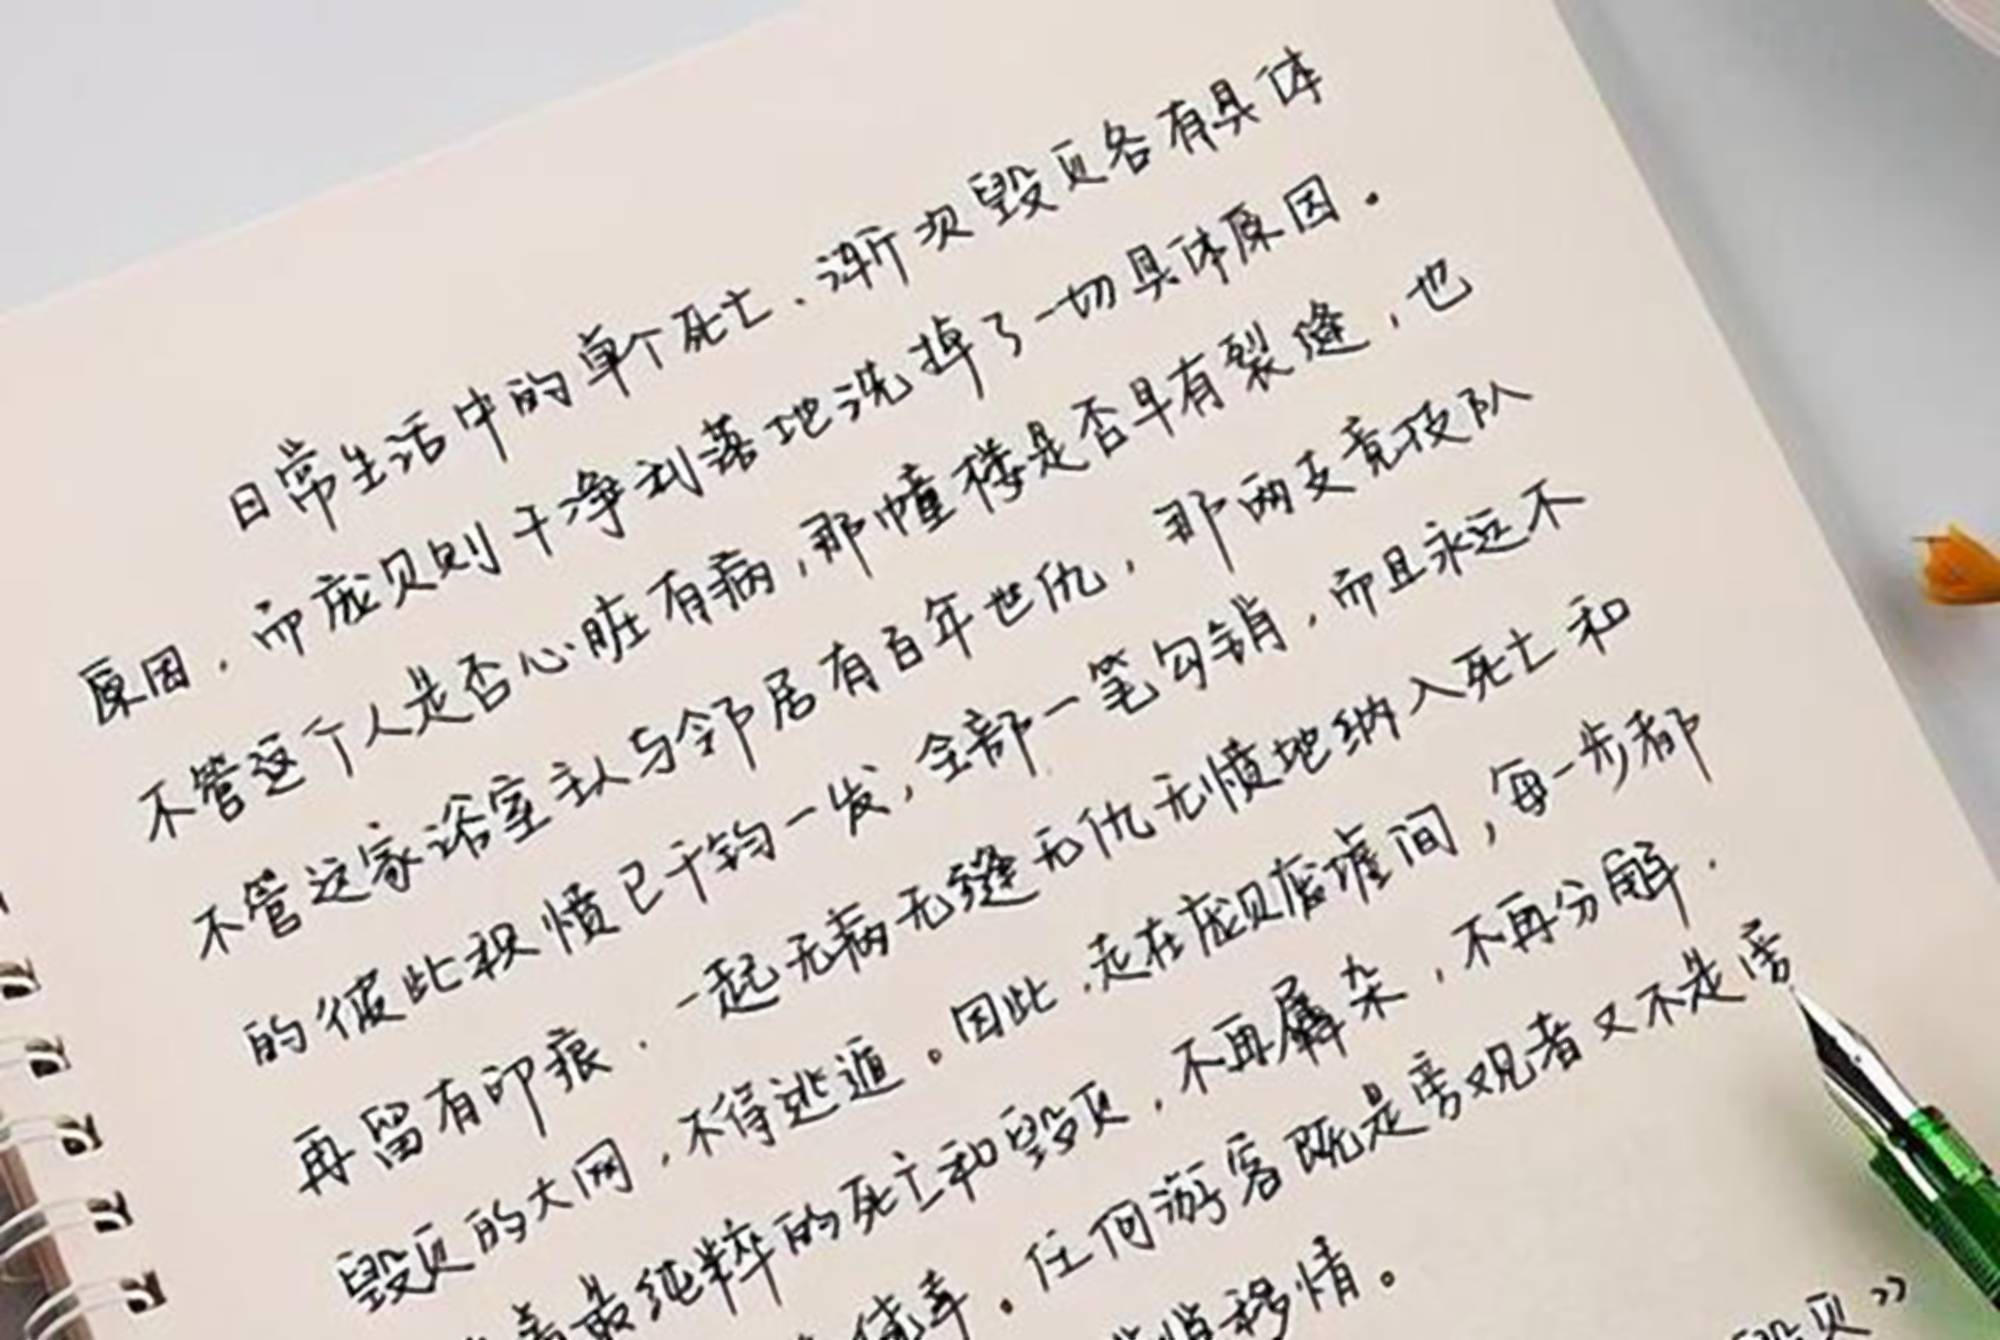 日常生活中的单个死亡、渐次毁灭各有具体
原因，而庞贝则干净利落地洗掉了一切具体原因。
不管这个人是否心脏有病，那幢楼是否早有裂缝，也
不管这家浴室主人与邻居有百年世仇，那两支竞技队
的彼此积愤已千钧一发，全部一笔勾销，而且永远不
再留有印痕．一起无病无缝无仇无愤地纳入死亡和
毁灭的大网，不得逃遁。因此，走在庞贝废墟间，每一步都
最纯粹的死亡和毁灭，不再羼杂，不再分解．
侥幸。任何游客既是旁观者又不是旁
悄移情。
》